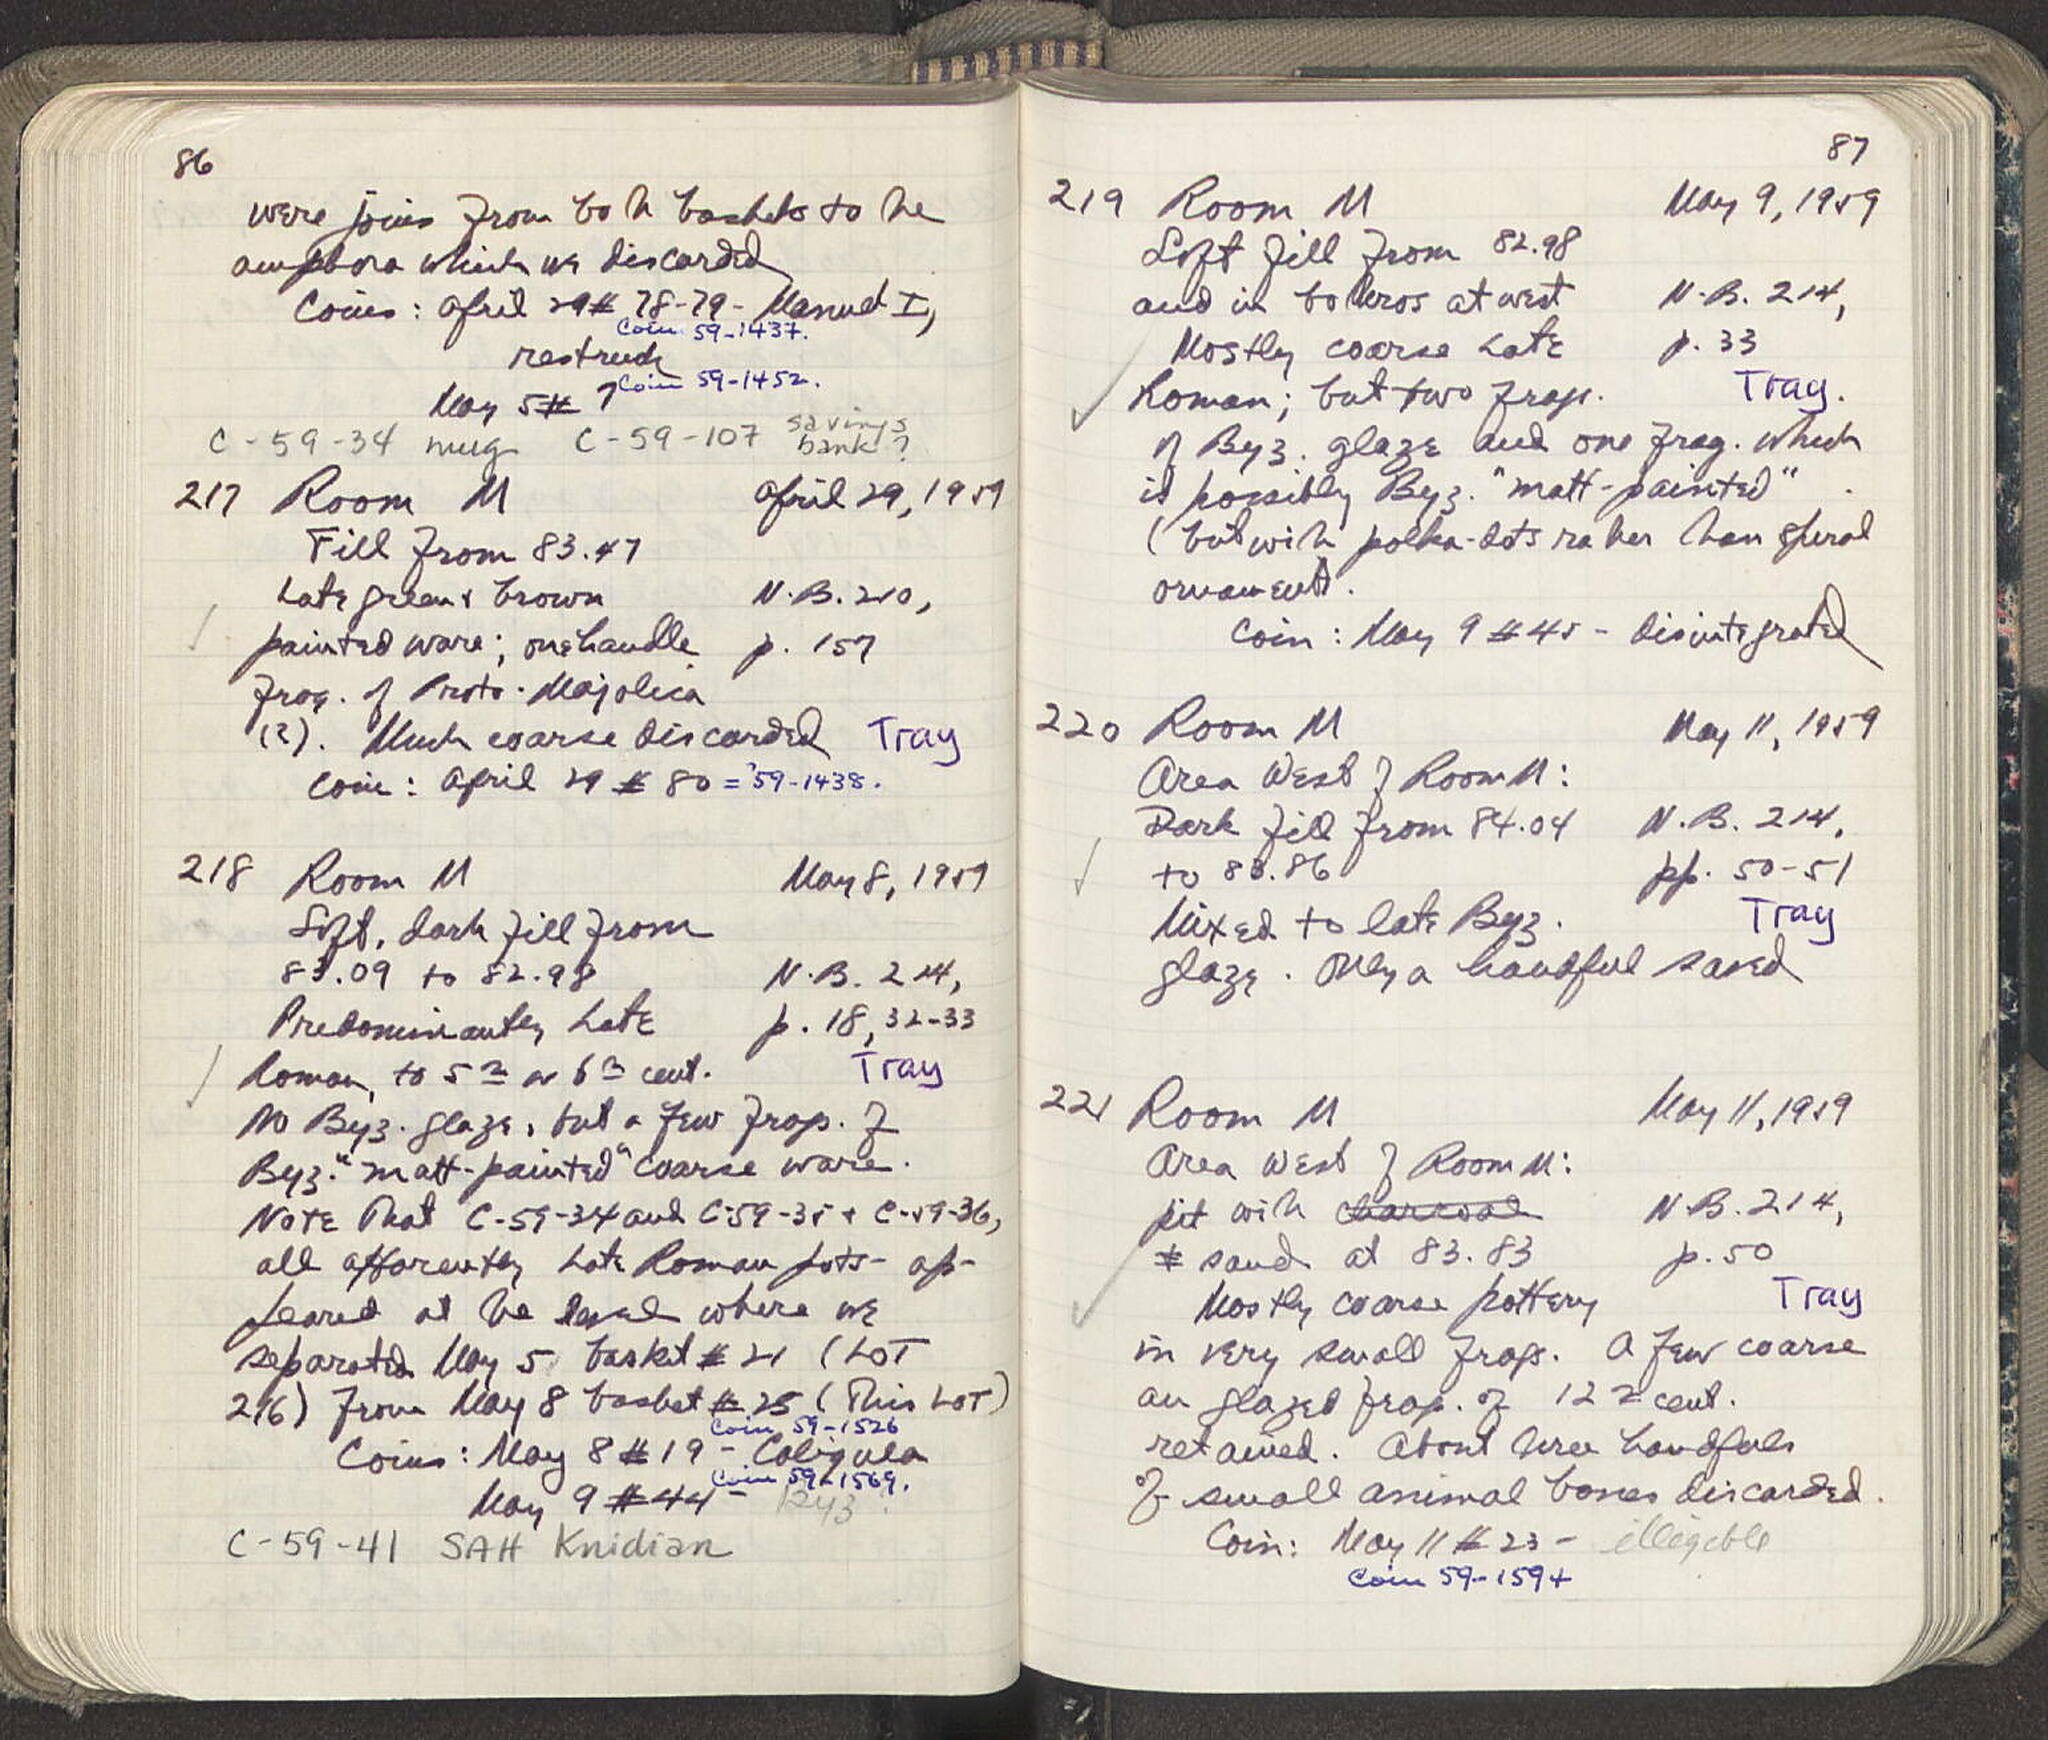 86
were joins from both baskets to the
amphora which we discarded
Coins: April 29 # 78-79 - Manuel I,
Coin 59-1437.
restruck
May 5 # 7 Coin 59-1452.
C-59-34 mug C-59-107 savings
bank?
217 Room M April 29, 1959
Fill from 83.47
Late green & brown N.B. 210,
painted ware; one handle p. 157
frag. of Proto-Majolica
(?). Much coarse discarded Tray
Coin: April 29 # 80 = '59-1438.
218 Room M May 8, 1959
Soft, dark fill from
83.09 to 82.98 N.B. 214,
Predominantly Late p. 18, 32-33
Roman, to 5th or 6th cent. Tray
No Byz. glaze, but a few frags. of
Byz. "matt-painted" coarse ware.
Note that C-59-34 and C-59-35 & C-59-36,
all apparently Late Roman pots - ap-
peared at the level where we
separated May 5 basket # 21 (LOT
216) from May 8 basket # 25 (This LOT)
Coin 59-1526
Coins: May 8 # 19 - Caligula
Coin 59-1569.
May 9 # 44 - Byz ?
C-59-41 SAH Knidian
87
219 Room M May 9, 1959
Soft fill from 82.98
and in bothros at west N.B. 214,
Mostly coarse Late p. 33
Roman; but two frags. Tray.
of Byz. glaze and one frag. which
is possibly Byz. "matt-painted"
(but with polka-dots rather than spiral
ornament.
Coin: May 9 # 45 - disintegrated
220 Room M May 11, 1959
Area West of Room M:
Dark fill from 84.04 N.B. 214,
to 83.86 pp. 50-51
Mixed to late Byz. Tray
glaze. Only a handful saved
221 Room M May 11, 1959
Area West of Room M:
pit with charcoal N.B. 214,
& sand at 83.83 p. 50
Mostly coarse pottery Tray
in very small frags. A few coarse
an glazed frag. of 12th cent.
retained. About three handfuls
of small animal bones discarded.
Coin: May 11 # 23 - illegible
Coin 59-1594